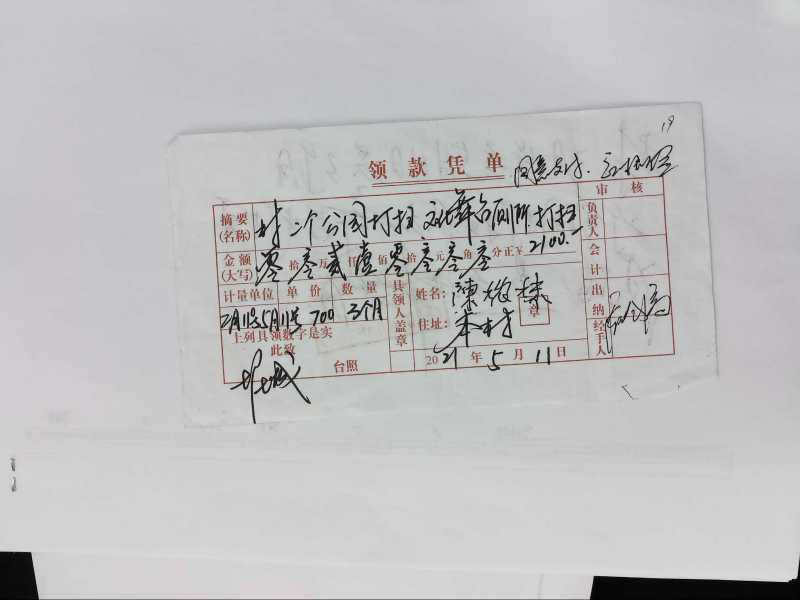 19
领款凭单
同意支付.
审核
摘要(名称) 村二个公园打扫 文化舞台厕所打扫
负责人
金额(大写) 零拾零万贰仟壹佰零拾零元零角零分正至2100.-
会计
计量单位 单价 数量
具领人盖章
姓名: 陳
章
住址: 本村
出纳
2月11号5月11号 700 3个月
上列具领数字是实
此致
台照
2021年5月11日
经手人